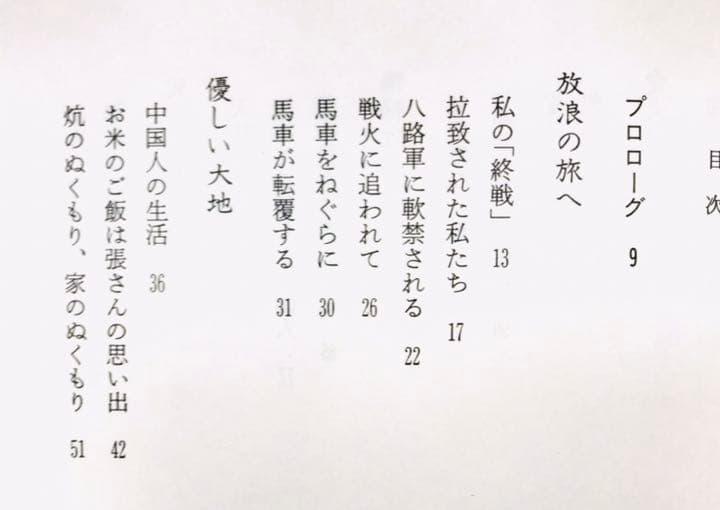 目次
プロローグ 9
放浪の旅へ
私の「終戦」 13
拉致された私たち 17
八路軍に軟禁される 22
戦火に追われて 26
馬車をねぐらに 30
馬車が転覆する 31
優しい大地
中国人の生活 36
お米のご飯は張さんの思い出 42
炕のぬくもり、家のぬくもり 51